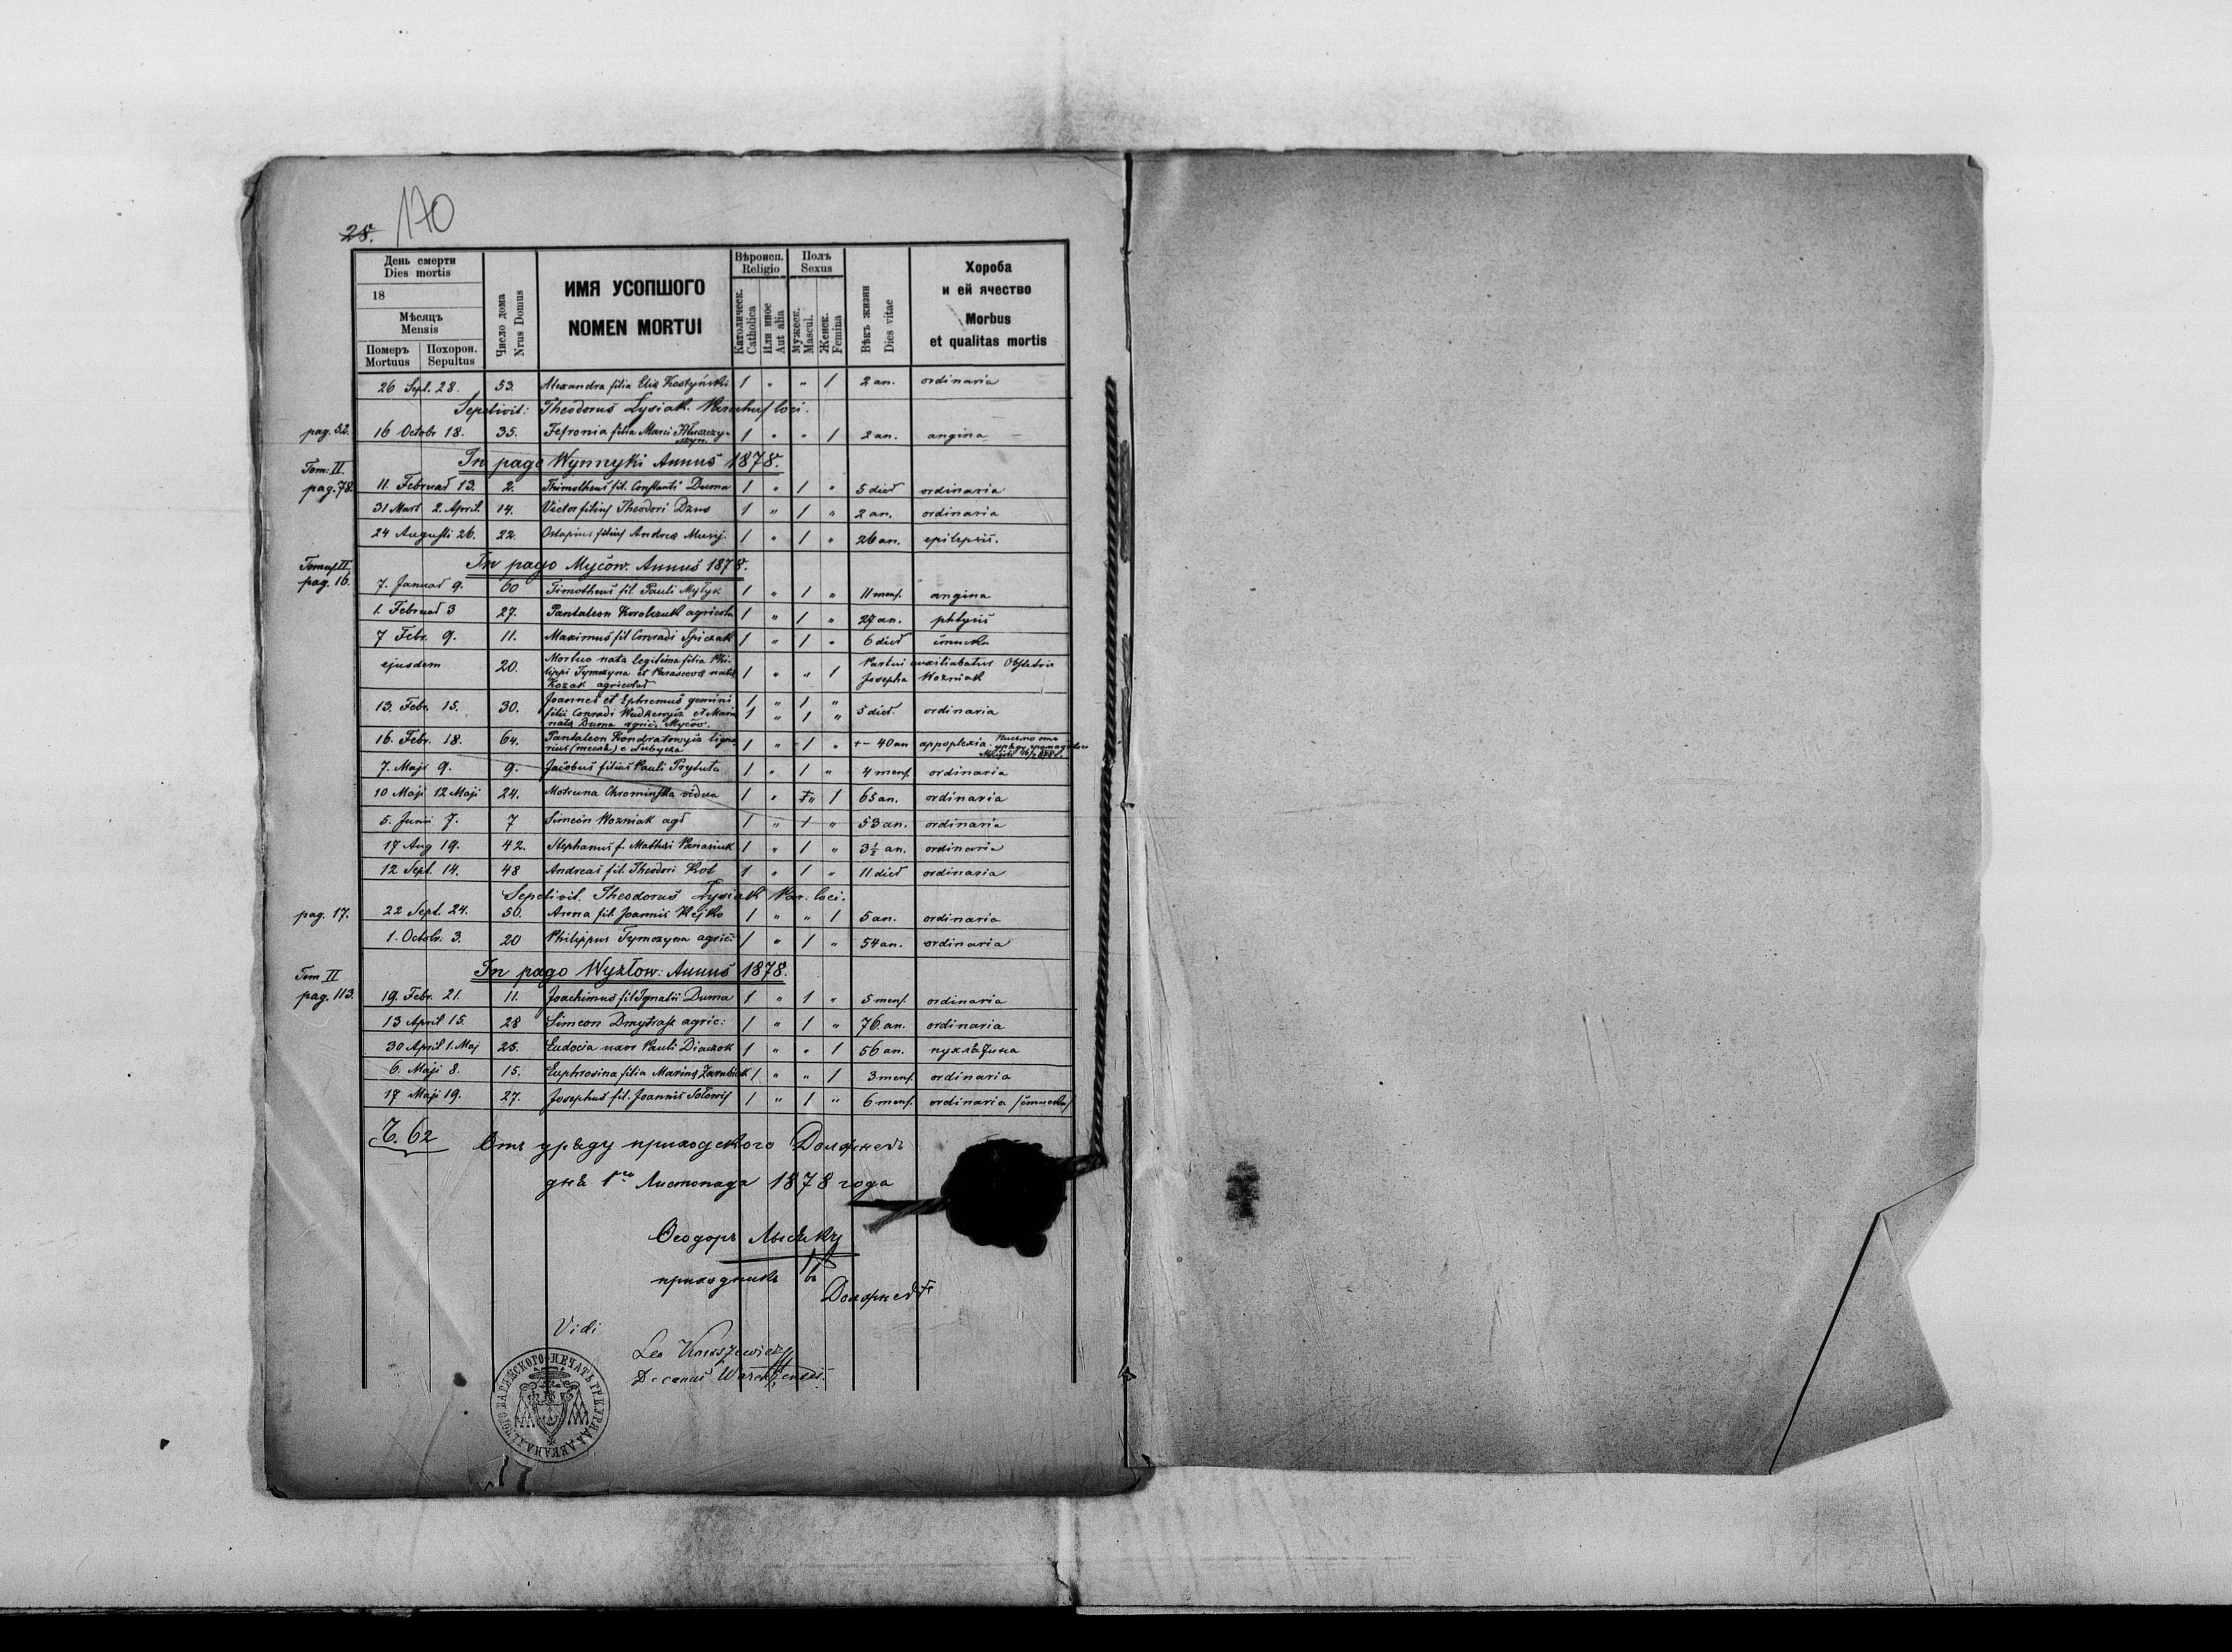 28. 170
День смерти
Dies mortis
18
Мѣсяцъ
Mensis
Померъ Mortuus
Похорон. Sepultus
Число дома
Nrus Domus
ИМЯ УСОПШОГО
NOMEN MORTUI
Вѣроисп.
Religio
Католическ.
Catholica
Или иное
Aut alia
Полъ
Sexus
Мужеск.
Mascul.
Женск.
Femina
Вѣкъ жизни
Dies vitae
Хороба
и ей ячество
Morbus
et qualitas mortis
26 Sept. 28. 53. Alexandra filia Eliæ Kostyński 1 " " 1 2 an. ordinaria
Sepelivit: Theodorus Łysiak. Parochus loci.
pag. 52. 16 Octobr 18. 35. Fefronia filia Marci 1 " " 1 2 an. angina
In pago Wynnyki Annus 1878.
Tom: II.
pag. 78. 11. Februar 13. 2. Thimotheus fil. Constanti Duma 1 " 1 " 5 dies ordinaria
31 Mart. 2. April. 14. Victor filius Theodori Dzus 1 " 1 " 2 an. ordinaria
24 Augusti 26. 22. Ostapius filius Andreæ Musij 1 " 1 " 26 an. epilepsis.
In pago Myców. Annus 1878.
Tomus II
pag. 16. 7. Januar 9. 60 Timotheus fil. Pauli Mytyk 1 " 1 " 11 mens. angina
1. Februar 3 27. Pantaleon Korolczuk agricola 1 " 1 " 27 an. phtysis
7 Febr. 9. 11. Maximus fil Conradi Spiczak 1 " 1 " 6 dies
ejusdem 20. Mortuo nata legitima filia Phi-
lippi Tymczyna et Parascevæ nata
Kozak agricolæ 1 " " 1 Partui auxiliabatur Obstetrix
Josepha Wozniak
13. Febr. 15. 30. Joannes et Ephremus gemini
filii Conradi et Maria
nata Duma agric. Myców. 1 " 1 " 1 " 1 " 5 dies. ordinaria
16. Febr. 18. 64. Pantaleon Kondratowycz ligna-
rius (тесля) e Lubycza 1 " 1 " +- 40 an appoplexia. Письмо отъ
7. Maji 9. 9. Jacobus filius Pauli Prytuła 1 " 1 " 4 mens. ordinaria
10 Maji 12 Maji 24. Motruna Chromińska vidua 1 " " 1 65 an. ordinaria
5. Junii 7. 7 Simeon Wozniak agr 1 " 1 " 53 an. ordinaria
17 Aug 19. 42. Stephanus f. Mathei Panasiuk 1 " 1 " 3½ an. ordinaria
12 Sept. 14. 48 Andreas fil. Theodori Kot 1 " 1 " 11 dies ordinaria
Sepelivit. Theodorus Łysiak Par. loci.
pag. 17. 22 Sept. 24. 50. Anna fil. Joannis Klejko 1 " " 1 5 an. ordinaria
1. Octobr. 3. 20 Philippus Tymczyna agric: 1 " 1 " 54 an. ordinaria
In pago Wyzłow: Annus 1878.
Tom II
pag. 113. 19. Febr. 21. 11. Joachimus fil Ignatii Duma 1 " 1 " 5 mens. ordinaria
13 April 15. 28 Simeon Dmytrasz agric: 1 " 1 " 76. an. ordinaria
30 April 1. Maj 25. Eudocia uxor Pauli Diaczok 1 " " 1 56 an. пухлѣтина
6. Maji 8. 15. Euphrosina filia Marini Zarubiak 1 " " 1 3 mens. ordinaria
17 Maji 19. 27. Josephus fil. Joannis Sołowij 1 " 1 " 6 mens. ordinaria
Ч. 62 Отъ уряду приходского Должневъ
днѣ 1го Листопада 1878 года
Ѳеодоръ Лысякъ
приходникъ въ
Должневѣ
Vidi
Leo
Decanus